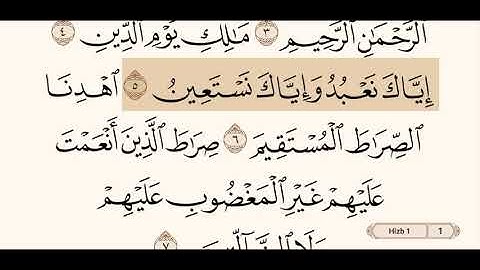 ٱلرَّحْمَٰنِ ٱلرَّحِيمِ ٣ مَٰلِكِ يَوْمِ ٱلدِّينِ ٤
إِيَّاكَ نَعْبُدُ وَإِيَّاكَ نَسْتَعِينُ ٥ ٱهْدِنَا
ٱلصِّرَٰطَ ٱلْمُسْتَقِيمَ ٦ صِرَٰطَ ٱلَّذِينَ أَنْعَمْتَ
عَلَيْهِمْ غَيْرِ ٱلْمَغْضُوبِ عَلَيْهِمْ
وَلَا ٧
Hizb 1 1